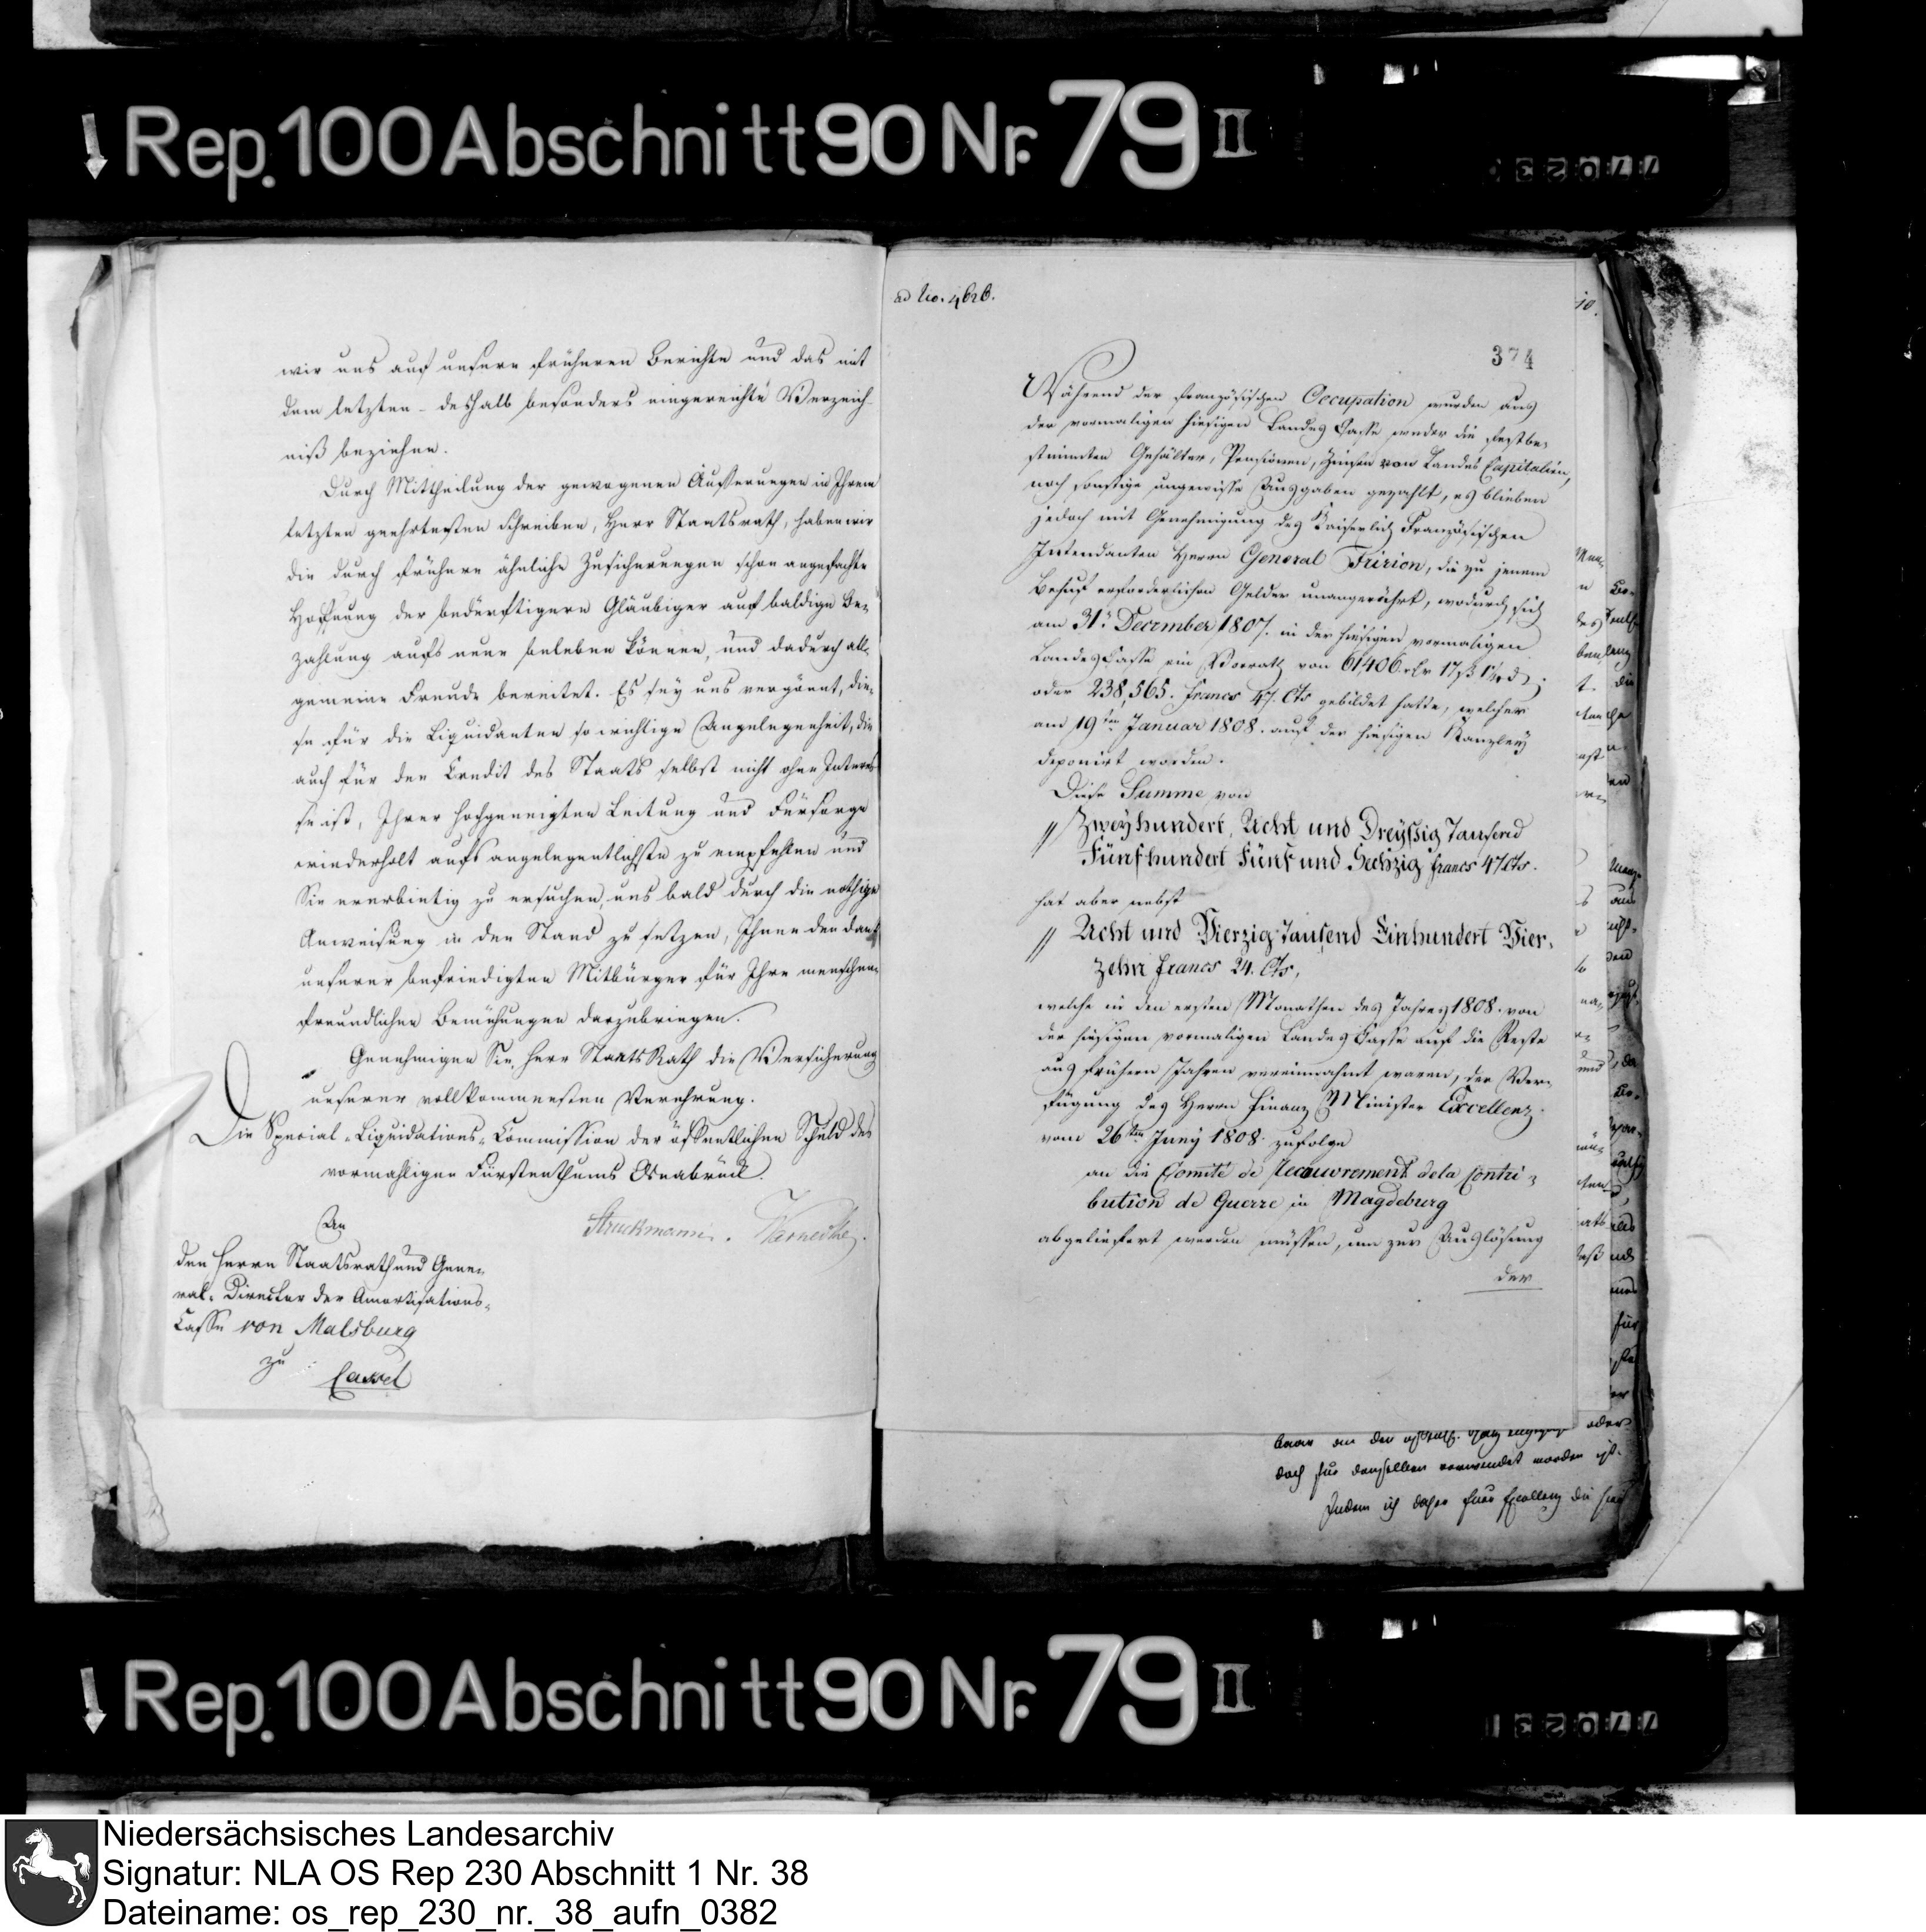 ↓ Rep. 100 Abschnitt 90 Nr. 79 II
77023
wir uns auf unsere früheren Berichte und das mit
dem letzten deshalb besonders eingereichte Verzeich-
niß beziehen.
Durch Mittheilung der gewogenen Äusserungen in Ihrem
letzten geehrtesten Schreiben, Herr Staatsrath, haben wir
die durch frühere ähnliche Zusicherungen schon angefachte
Hoffnung der bedürftigern Gläubiger auf baldige Be-
zahlung aufs neue beleben können, und dadurch all-
gemeine Freude bereitet. Es sey uns vergönnt, die-
se für die Liquidanten so wichtige Angelegenheit, die
auch für den Credit des Staats selbst nicht ohne Interes-
se ist, Ihrer hochgeneigten Leitung und Fürsorge
wiederholt aufs angelegentlichste zu empfehlen und
Sie ererbietig zu ersuchen, uns bald durch die nöthige
Anweisung in den Stand zu setzen, Ihnen den Dank
unserer befriedigten Mitbürger für Ihre menschen-
freundlichen Bemühungen darzubringen.
Genehmigen Sie, Herr StaatsRath die Versicherung
unserer vollkommensten Verehrung.
Die Special-Liquidations-Commission der öffentlichen Schuld des
vormahligen Fürstenthums Osnabrück.
Struckmann.
An
den Herrn Staatsrath und Gene-
ral-Director der Amortisations-
Casse von Malsburg
zu
Cassel
ad No. 4626.
374
Während der französischen Occupation wurden aus
der vormaligen hiesigen Landes Casse weder die festbe-
stimmten Gehälter, Pensionen, Zinsen von Landes Capitalien,
noch sonstige ungewisse Ausgaben gezahlt, es blieben
jedoch mit Genehmigung des Kaiserlich Französischen
Intendanten Herrn General Fririon, die zu jenem
Behuf erforderlichen Gelder unangerührt, wodurch sich
am 31. December 1807. in der hiesigen vormaligen
Landes Casse ein Vorrath von 61406 17
oder 238,565. francs 47. Cts gebildet hatte, welcher
am 19ten Januar 1808. auf der hiesigen Kanzley
deponirt worden.
Diese Summe von
// Zweyhundert, Acht und Dreyßig Tausend
Fünfhundert Fünf und Sechzig francs 47 Cts.
hat aber nebst
// Acht und Vierzig Tausend Einhundert Vier-
zehn francs 24. Cts,
welche in den ersten Monathen des Jahres 1808. von
der hiesigen vormaligen Landes Casse auf die Reste
aus frühern Jahren vereinnahmt waren, der Ver-
fügung des Herrn Finanz Minister Excellenz
vom 26ten Juny 1808. zufolge
an die Comité de Recouvrement de la Contri-
bution de Guerre in Magdeburg
abgeliefert werden müssen, um zur Auslösung
der
doch für denselben verwendet worden ist.
Indem ich daher Euer Excellenz die
↓ Rep. 100 Abschnitt 90 Nr. 79 II
77023
Niedersächsisches Landesarchiv
Signatur: NLA OS Rep 230 Abschnitt 1 Nr. 38
Dateiname: os_rep_230_nr._38_aufn_0382